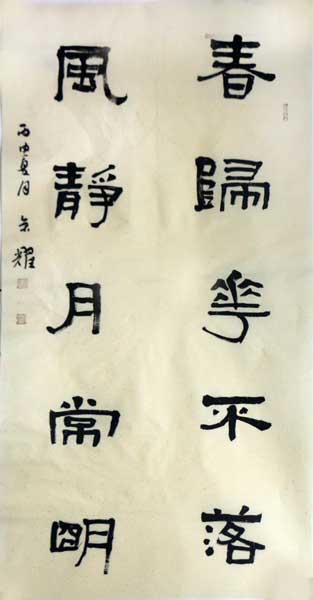 春歸花不落
風靜月常明
丙申夏月